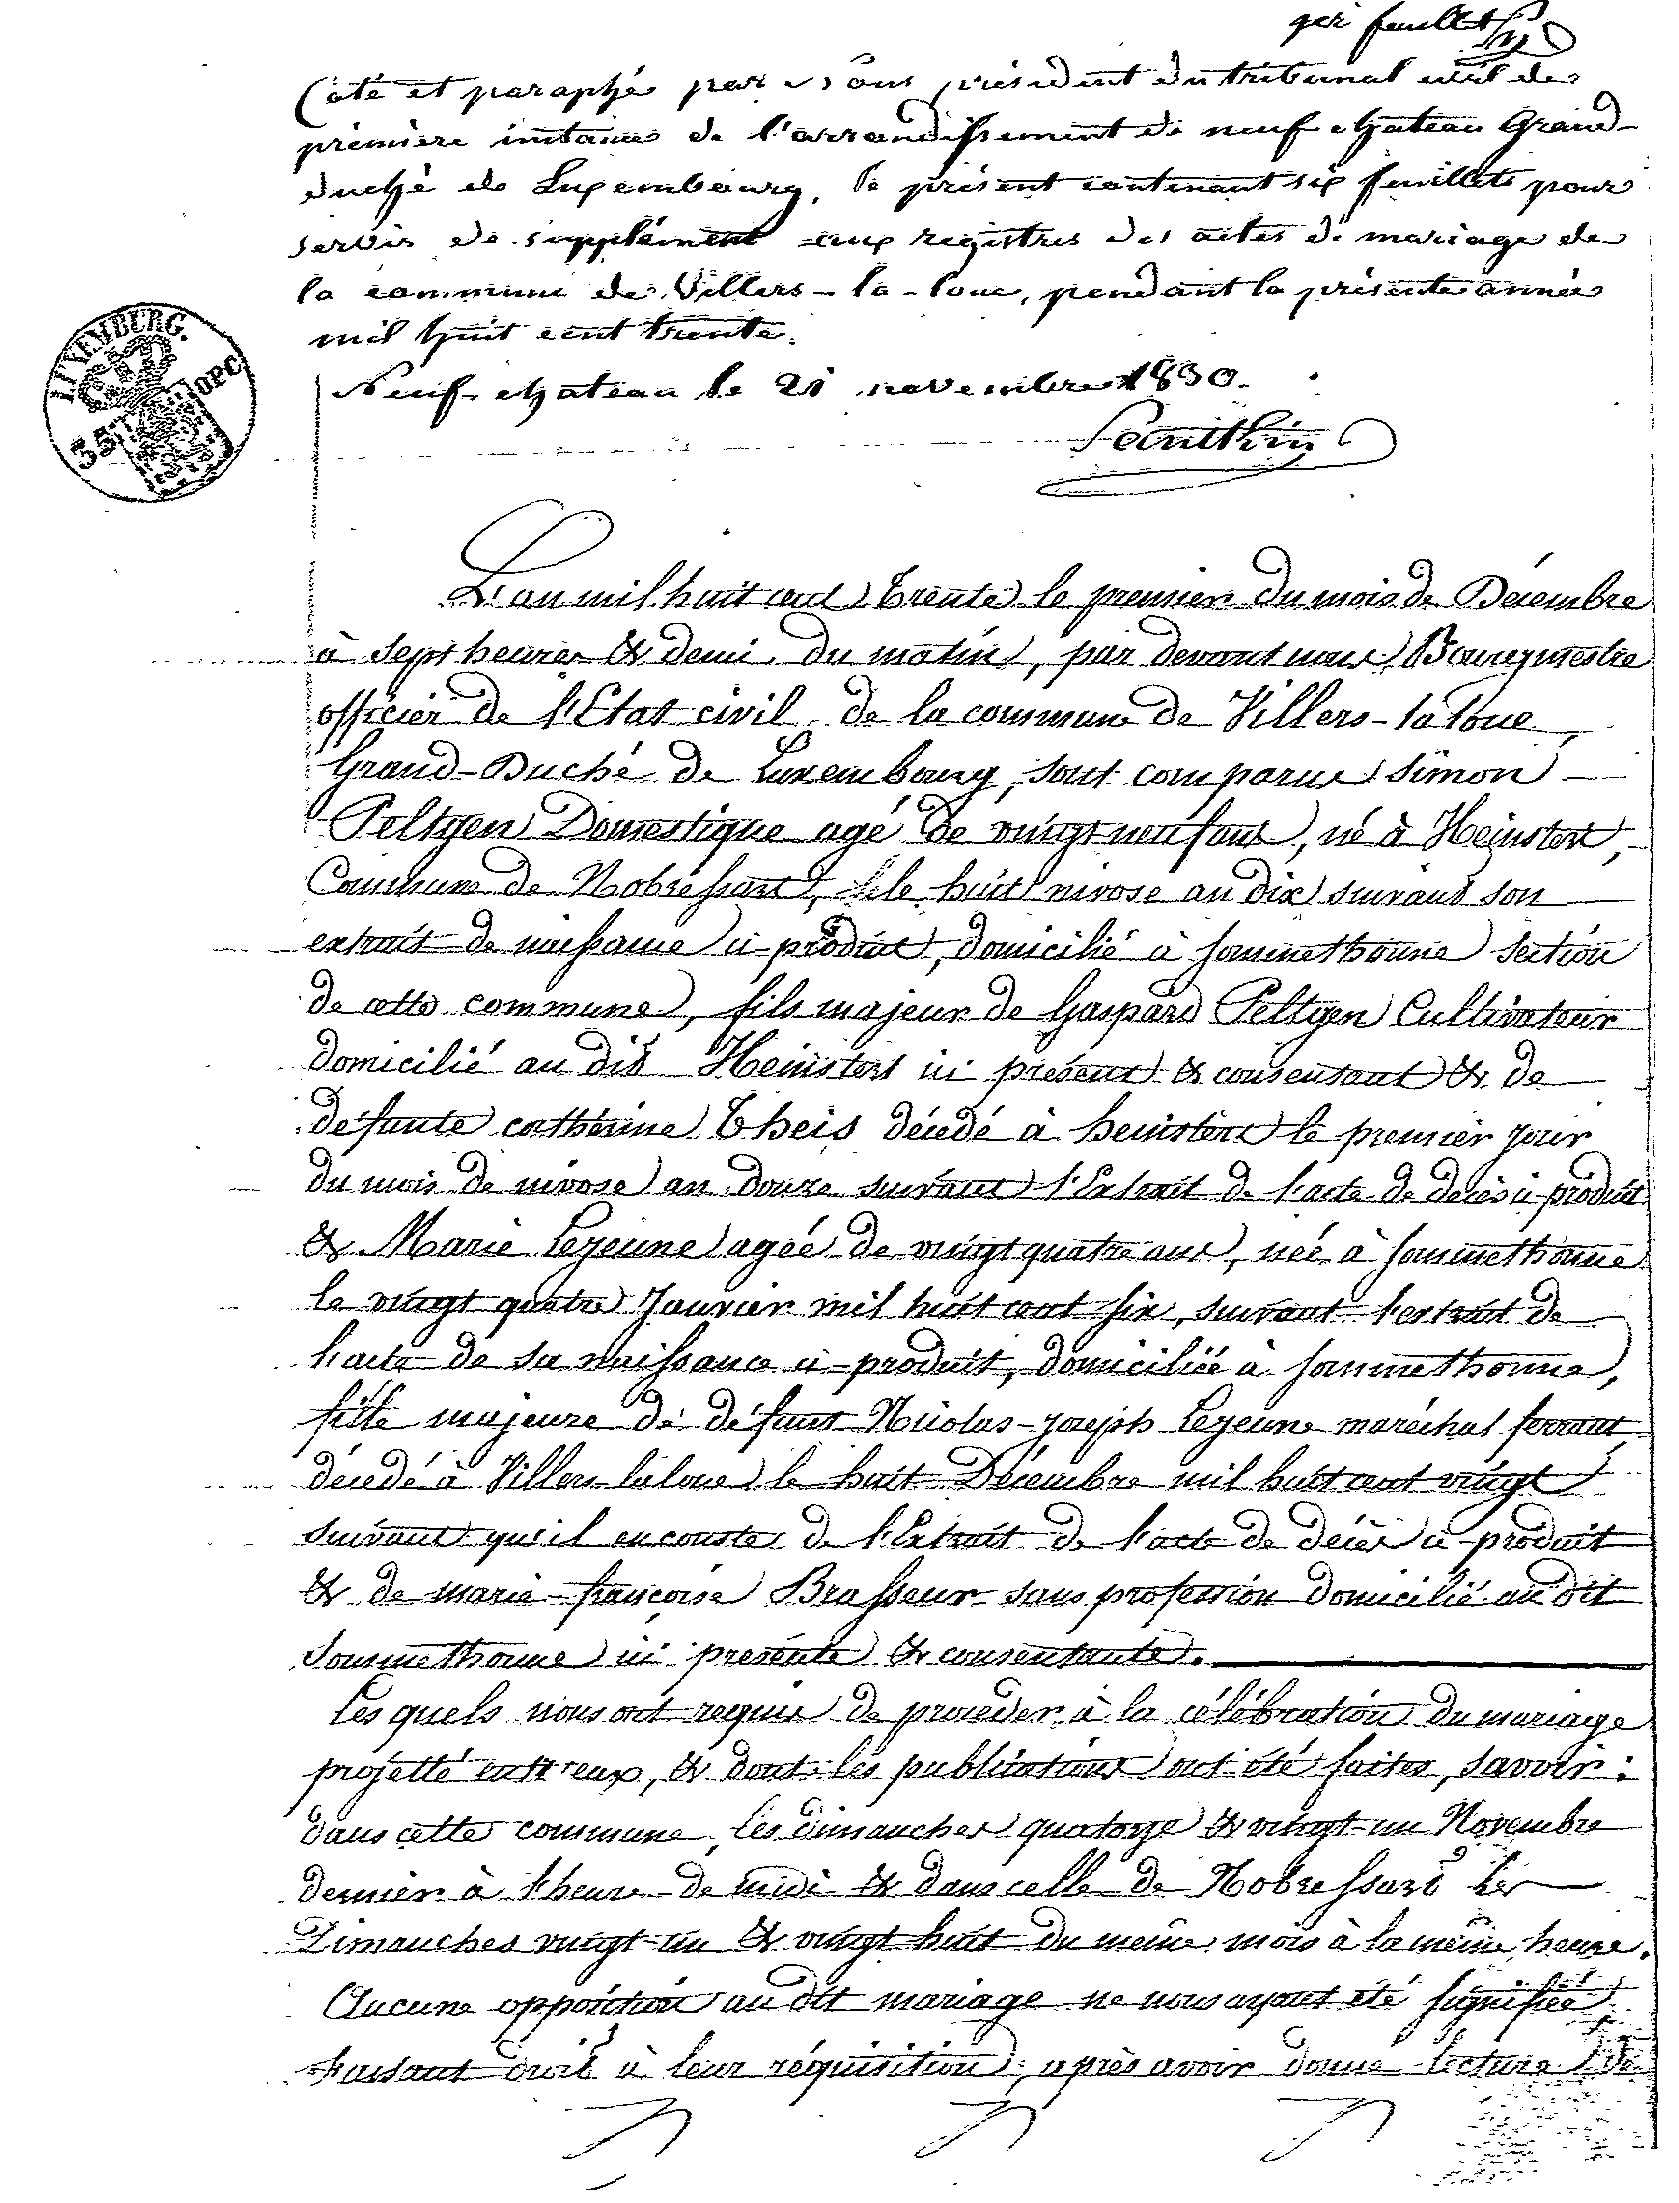 1er feuillet
Coté et paraphé par Nous président du tribunal civil de
première instance de l'arrondissement de neufchateau Grand-
duché de Luxembourg, le présent contenant six feuillets pour
servir de supplément aux registres des actes de mariage de
la commune de Villers-la-loue, pendant la présente année
mil huit cent trente.
LUXEMBURG.
35 OPC
Neufchateau le 21 novembre 1830.
L'an mil huit cent Trente le premier du mois de Décembre
à sept heures & demi du matin, par devant nous Bourgmestre
officier de l'Etat civil de la commune de Villers-la loue,
Grand-Duché de Luxembourg, sont comparus Simon
Peltgen Domestique agé de vingt neuf ans, né à Heinstert,
Commune de Nobressart, le huit nivose an dix suivant son
extrait de naissance ci-produit, domicilié à sommethonne Section
de cette commune, fils majeur de Gaspard Peltgen Cultivateur
domicilié au dit Heinstert ici présent & consentant & de
défunte cathérine Theis décédé à heinstert le premier jour
du mois de nivose an douze suivant l'Extrait de l'acte de décès ci-produit
& Marie Lejeune agée de vingt quatre ans, née à sommethonne
le vingt quatre Janvier mil huit cent six, suivant l'extrait de
l'acte de sa naissance ci-produit, domiciliée à sommethonne,
fille majeure de défunt Nicolas-joseph Lejeune maréchal ferrant
décédé à Villers-laloue le huit Décembre mil huit cent vingt
suivant qu'il en conste de l'Extrait de l'acte de décès ci-produit
& de marie-françoise Brasseur sans profession domicilié au dit
Sommethonne ici présente & consentante.
Les quels nous ont requis de procéder à la célébration du mariage
projetté entr'eux, & dont les publications ont été faites, savoir:
dans cette commune, les dimanches quatorze & vingt-un Novembre
dernier à l'heure de midi & dans celle de Nobressart les
Dimanches vingt-un & vingt huit du même mois à la même heure.
Aucune opposition au dit mariage ne nous ayant été signifiée,
faisant droit à leur réquisition, après avoir donné lecture de